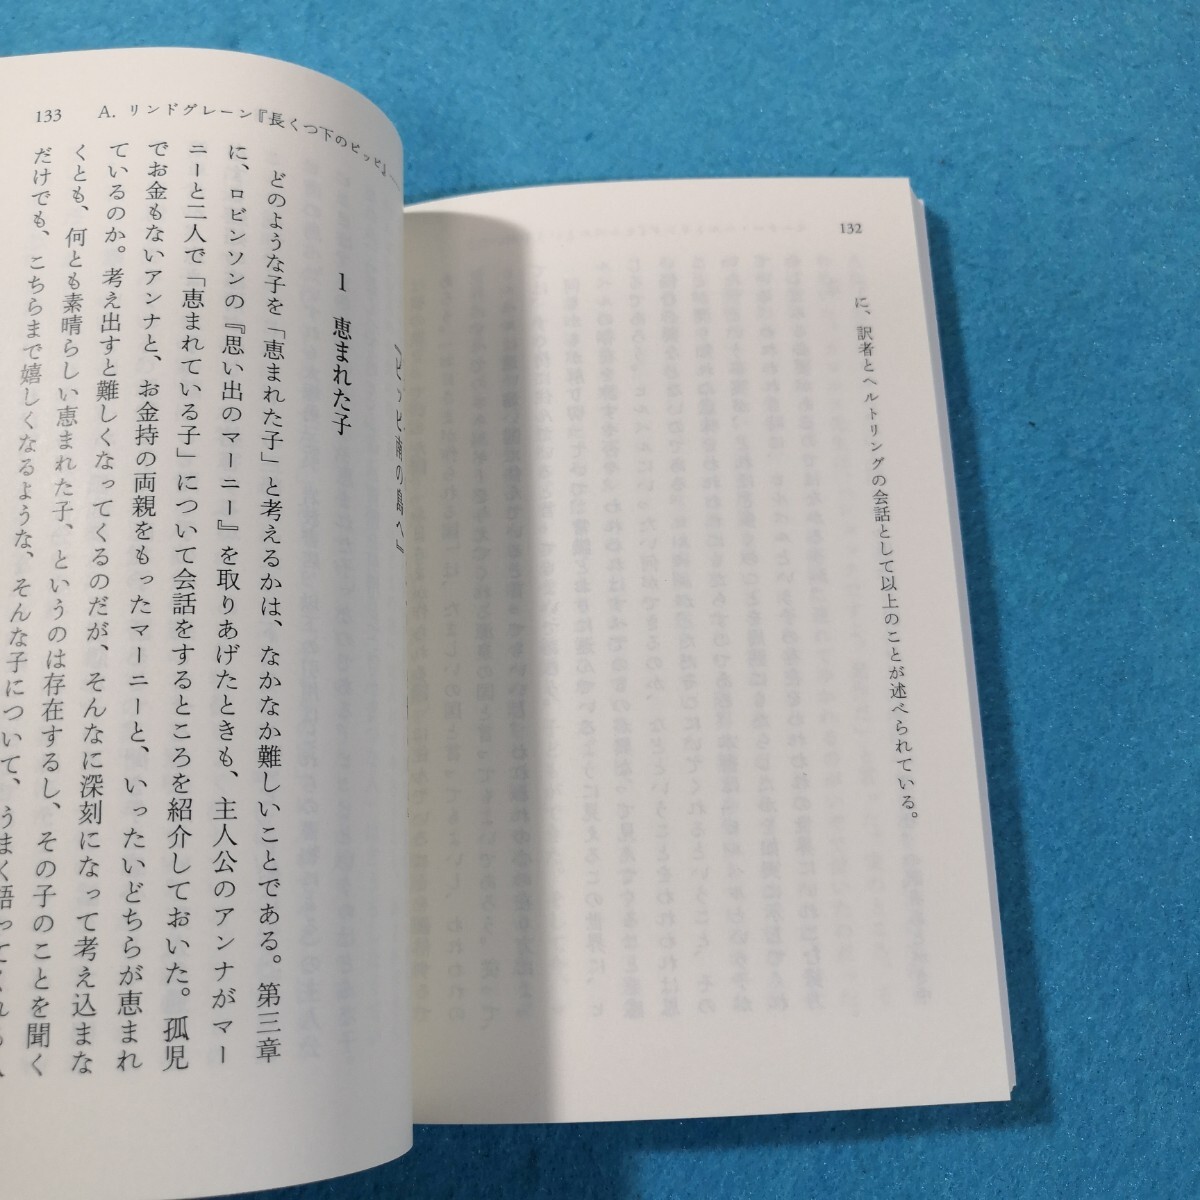 132
に、訳者とヘルトリングの会話として以上のことが述べられている。
133 A. リンドグレーン『長くつ下のピッピ』
『ピッピ南の島へ』
1 恵まれた子
どのような子を「恵まれた子」と考えるかは、なかなか難しいことである。第三章
に、ロビンソンの『思い出のマーニー』を取りあげたときも、主人公のアンナがマー
ニーと二人で「恵まれている子」について会話をするところを紹介しておいた。孤児
でお金もないアンナと、お金持の両親をもったマーニーと、いったいどちらが恵まれ
ているのか。考え出すと難しくなってくるのだが、そんなに深刻になって考え込まな
くとも、何とも素晴らしい恵まれた子、というのは存在するし、その子のことを聞く
だけでも、こちらまで嬉しくなるような、そんな子について、うまく語ってくれる